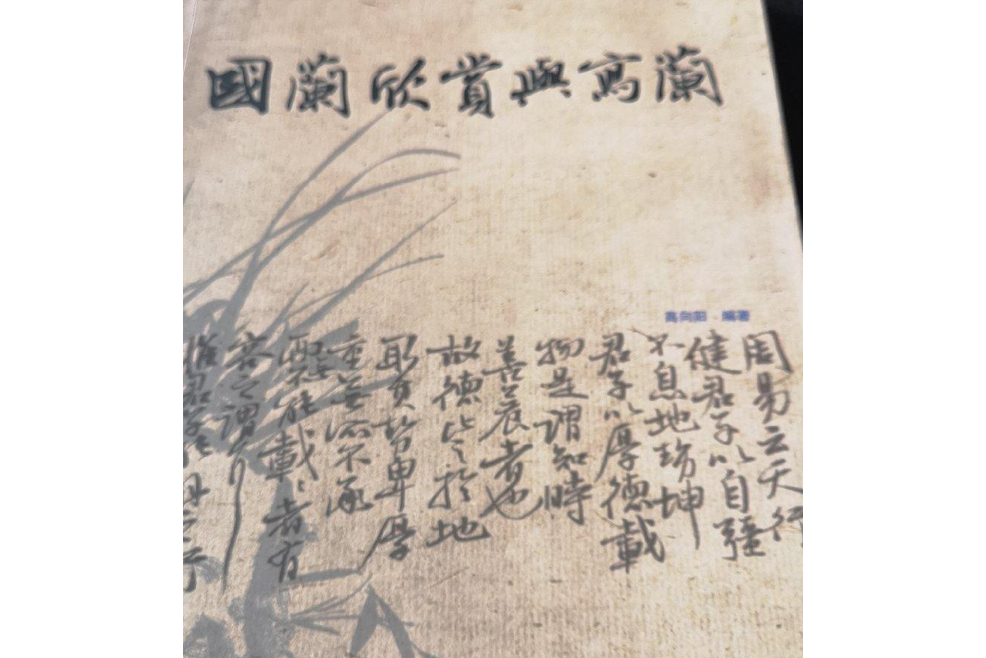 國蘭欣賞與寫蘭
高向阳 编著
周易云天行
健君子以自疆
不息地势坤
君子以厚德載
物是謂知時
善養者也
故德於地
取其势卑厚
重無所不承
不能載〻者有
容之謂
惟君子